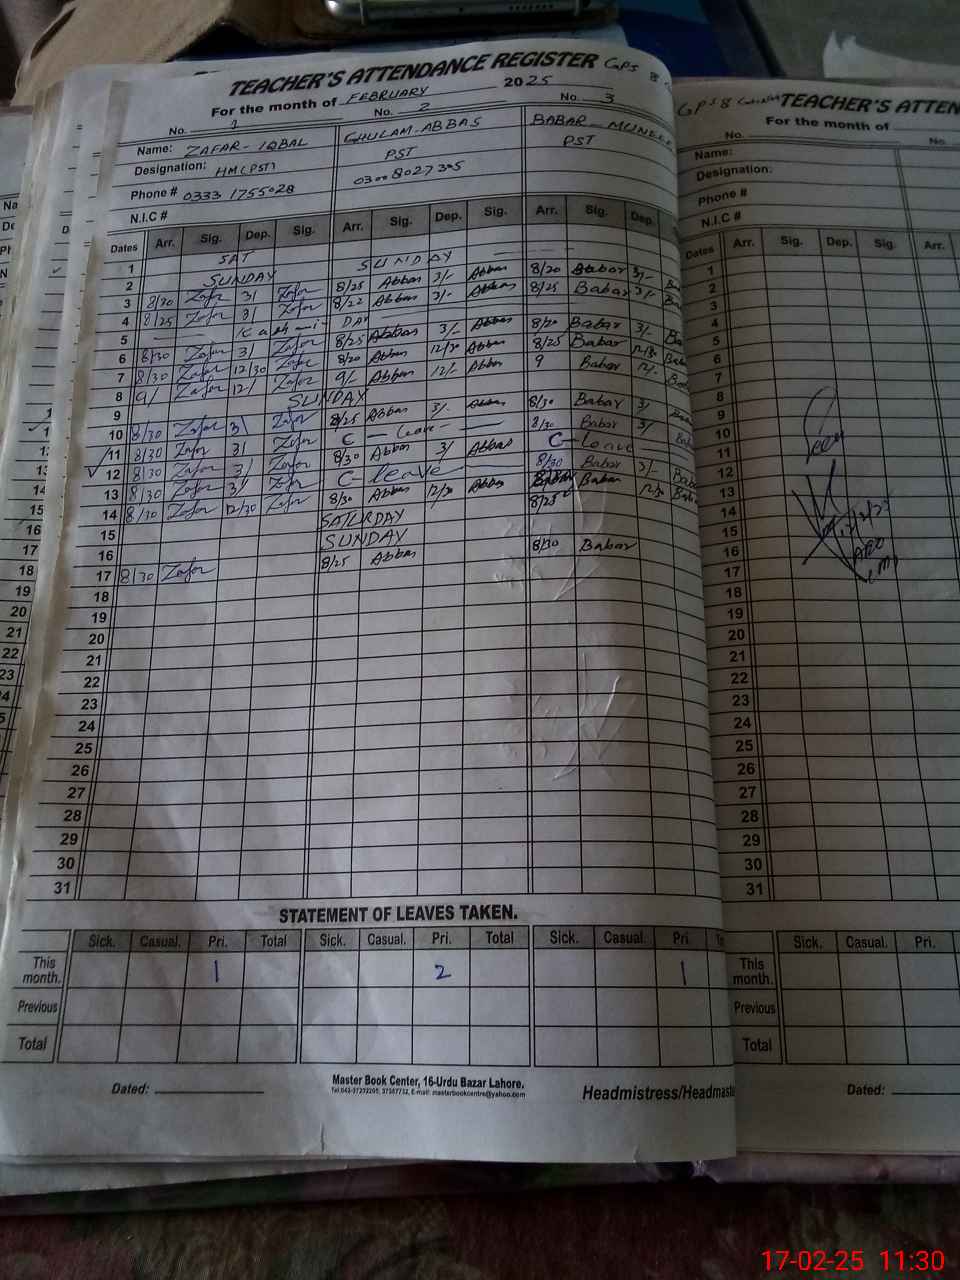 TEACHER'S ATTENDANCE REGISTER GPS 8
For the month of FEBRUARY 2025
No. 1 No. 2 No. 3
Name: ZAFAR-IQBAL GHULAM-ABBAS BABAR-MUNEE
Designation: HM(PST) PST PST
Phone # 0333 1755028 0300 8027305
N.I.C #
Dates Arr. Sig. Dep. Sig. Arr. Sig. Dep. Sig. Arr. Sig. Dep.
1 SAT
2 SUNDAY SUNDAY
3 8/30 Zafar 3/ Zafar 8/25 Abbas 3/- Abbas 8/20 Babar 3/-
4 8/25 Zafar 3/ Zafar 8/22 Abbas 3/- Abbas 8/25 Babar 3/-
5 Kashmir DAY
6 8/30 Zafar 3/ Zafar 8/25 Abbas 3/- Abbas 8/20 Babar 3/-
7 8/30 Zafar 12/30 Zafar 8/20 Abbas 12/30 Abbas 8/25 Babar 12/30
8 9/ Zafar 12/ Zafar 9/- Abbas 12/- Abbas 9 Babar 12/-
9 SUNDAY
10 8/30 Zafar 3/ Zafar 8/25 Abbas 3/- Abbas 8/30 Babar 3/
11 8/30 Zafar 3/ Zafar C - leave - 8/30 Babar 3/
12 8/30 Zafar 3/ Zafar 8/30 Abbas 3/ Abbas C-leave
13 8/30 Zafar 3/ Zafar C-leave 8/30 Babar 3/- Baba
14 8/30 Zafar 12/30 Zafar 8/30 Abbas 12/30 Abbas 8/25 Babar 12/30 Baba
15 SATURDAY
16 SUNDAY
17 8/30 Zafar 8/25 Abbas 8/30 Babar
18
19
20
21
22
23
24
25
26
27
28
29
30
31
STATEMENT OF LEAVES TAKEN.
Sick. Casual. Pri. Total Sick. Casual. Pri. Total Sick. Casual. Pri.
This month. 1 2 1
Previous
Total
Dated:
Master Book Center, 16-Urdu Bazar Lahore.
Headmistress/Headmaste
GPS 8 TEACHER'S ATTEN
For the month of
No. No.
Name:
Designation:
Phone #
N.I.C #
Dates Arr. Sig. Dep. Sig. Arr.
1
2
3
4
5
6
7
8
9
10
11
12
13
14
15
16
17
18
19
20
21
22
23
24
25
26
27
28
29
30
31
Seen
12/2/25
AEO
Sick. Casual. Pri.
This month.
Previous
Total
Dated:
17-02-25 11:30